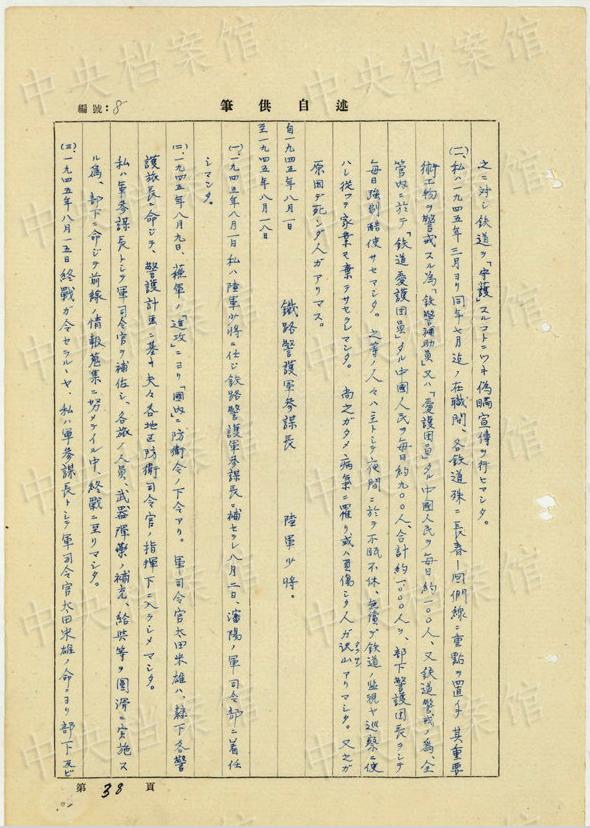 述自供筆
編號:8
之ニ対シ鉄道ヲ「守護」スルコトニツキ偽瞞宣傳ヲ行ヒマシタ。
(二)、私ハ一九四五年三月ヨリ同年七月迄ノ在職間、各鉄道殊ニ長春―四個線ニ重點ヲ置イテ其重要
術工物ヲ警戒スル為、「鉄警補助員」又ハ「愛護団員」タル中國人民ヲ毎日約一〇〇人、又鉄道警戒ノ為、全
管内ニ於テ「鉄道愛護団員」タル中國人民ヲ毎日約九〇〇人、合計約一、〇〇〇人ヲ、部下警護団長ヲシテ
毎日強制酷使サセマシタ。之等ノ人々ハ主トシテ夜間ニ於テ不眠不休、無償デ鉄道ノ監視ヤ巡察ニ使
ハレ従ツテ家業モ棄テサセラレマシタ。尚之ガタメ病気ニ罹リ或ハ負傷シタ人ガ沢山アリマシタ。又之ガ
原因デ死ンダ人ガアリマス。
自一九四五年八月一日
至一九四五年八月一八日
鐵路警護軍參謀長 陸軍少將。
(一)、一九四五年八月一日私ハ陸軍少將ニ任ジ鉄路警護軍參謀長ニ補セラレ八月二日、瀋陽ノ軍司令部ニ着任
シマシタ。
(二)、一九四五年八月九日、蘇軍ノ「進攻」ニヨリ「國内ニ防衛令ノ下令アリ。軍司令官太田米雄ハ、隷下各警
護旅長ニ命ジテ、警護計画ニ基キ夫々各地区防衛司令官ノ指揮下ニ入ラシメマシタ。
私ハ軍參謀長トシテ軍司令官ヲ補佐シ、各旅ノ人員、武器彈藥ノ補充、給與等ヲ圓滑ニ實施ス
ル為、部下ニ命ジテ前線ノ情報蒐集ニ努メテイル中、終戰ニ至リマシタ。
(三)、一九四五年八月一五日終戰ガ令セラルルヤ、私ハ軍參謀長トシテ軍司令官太田米雄ノ命ニヨリ部下及ビ
第38頁
中央档案馆